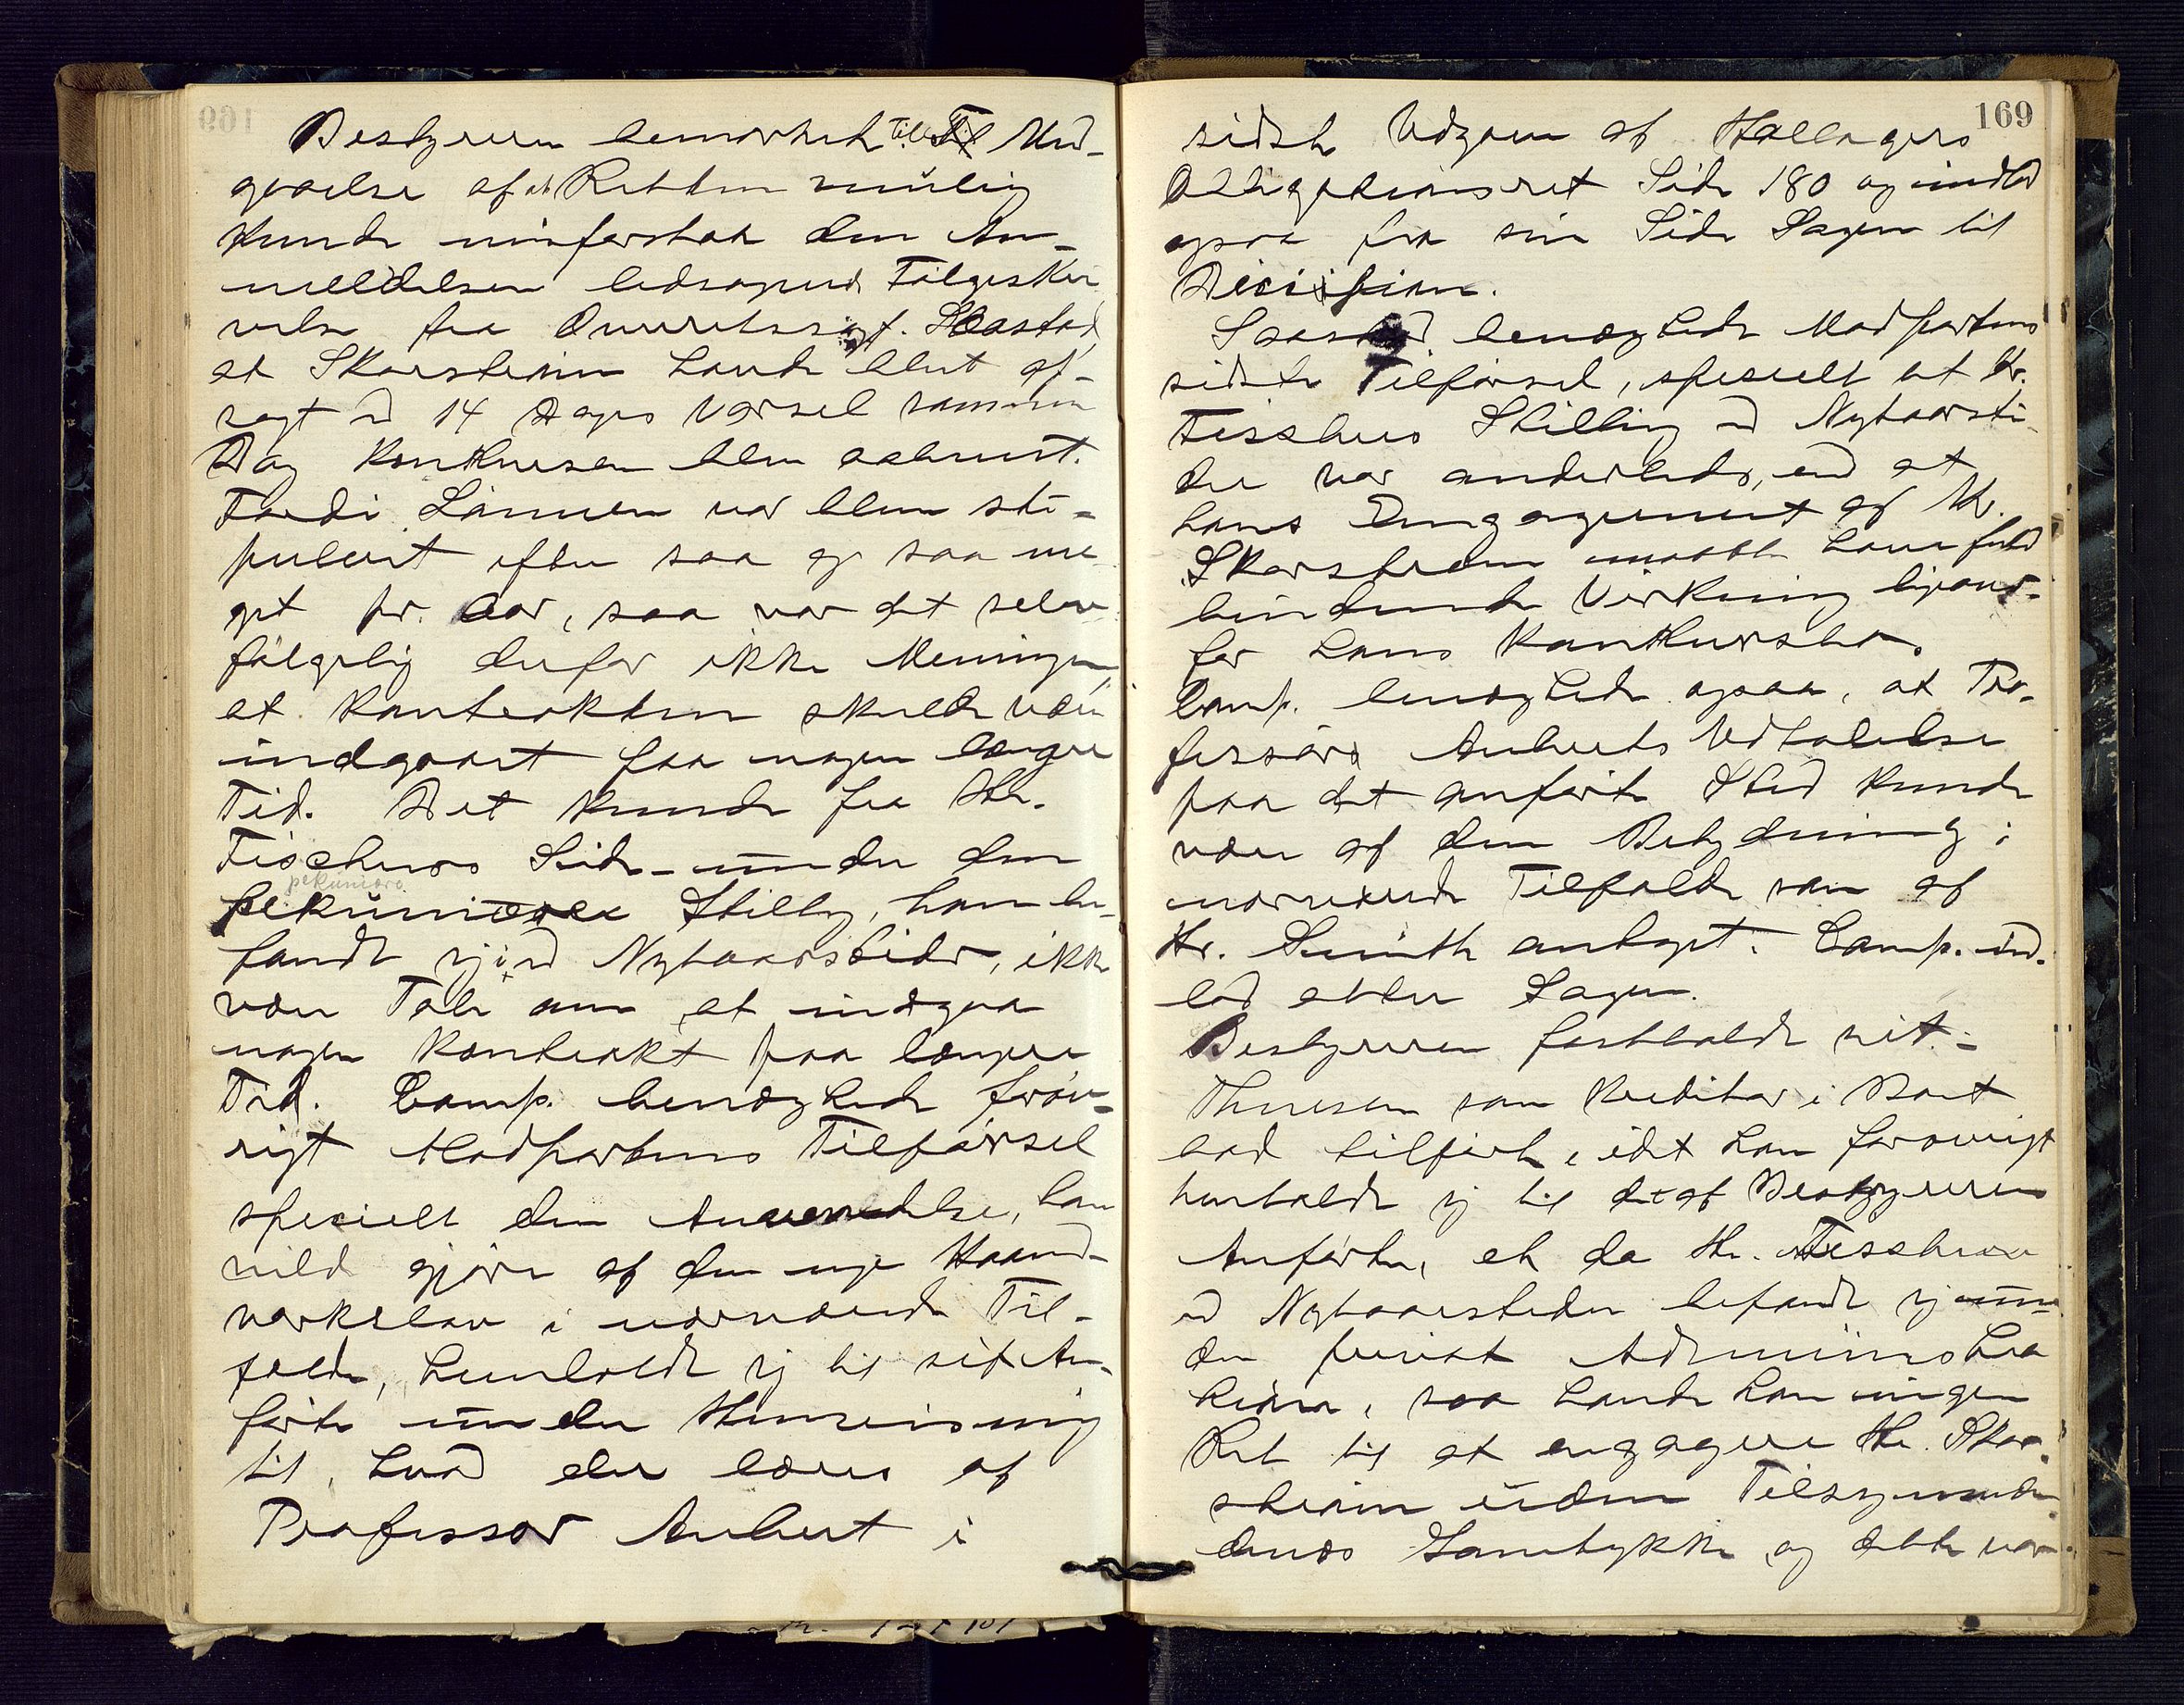 Bestyreren bemærkede til Und-
gaaelse af at Retten mulig
kunde misforstaa den An-
meldelsen ledsagende Følgeskri
velse fra Overretssagf. Saastad,
at Skarstrøm havde blet op-
sagt med 14 Dages Varsel samme
Dag Konkursen blev aabnet.
Fordi Lønnen var blevet sti-
puleret efter saa og saa me
get pr. Aar, saa var det selv
følgelig derfor ikke Meningen,
at Kontrakten skulde være
indgaaet paa nogen længere
Tid. Det kunde fra Hr.
Fischers Side under den
pekuniære
pekuniære Stilling, han be-
fandt sig i ved Nytaarstider, ikke
være Tale om at indgaa
nogen Kontrakt paa længere
Tid. Comp. benægtede forøv-
rigt Modpartens Tilførsel
specielt den Anvendelse, han
vilde gjøre af den nye Haand-
værkslov i nærværende Til-
fælde, henholdt sig til sit An-
førte under Henvisning
til, hvad der læres af
Professor Aubert i
169
sidste Udgave af Hallagers
Obligationsret Side 180 og indlod
ogsaa fra sin Side Sagen til
Decision.
Saastad benægtede Modpartens
sidste Tilførsel, specielt at Hr.
Fischers Stilling ved Nytaarsti
der var anderledes, end at
hans Engagement af Hr.
Skarstrøm maatte have fuld
bindende Virkning ligeover-
for hans Konkursbo.
Comp. benægtede ogsaa, at Pro-
fessors Auberts Udtalelse
paa det anførte Sted kunde
være af den Betydning i
nærværende Tilfælde som af
Hr. Smith antaget. Comp. ind-
lod atter Sagen.
Bestyreren fastholdt sit.
Thuesen som Kreditor i Boet
bad tilført, idet han forøvrigt
henholdt sig til det af Bestyreren
Anførte, at da Hr. Fischer
ved Nytaarstider befandt sig un-
der privat Administra
tion, saa havde han ingen
Ret til at engagere Hr. Skar-
strøm uden Tilsynsmæn
denes Samtykke og dette var